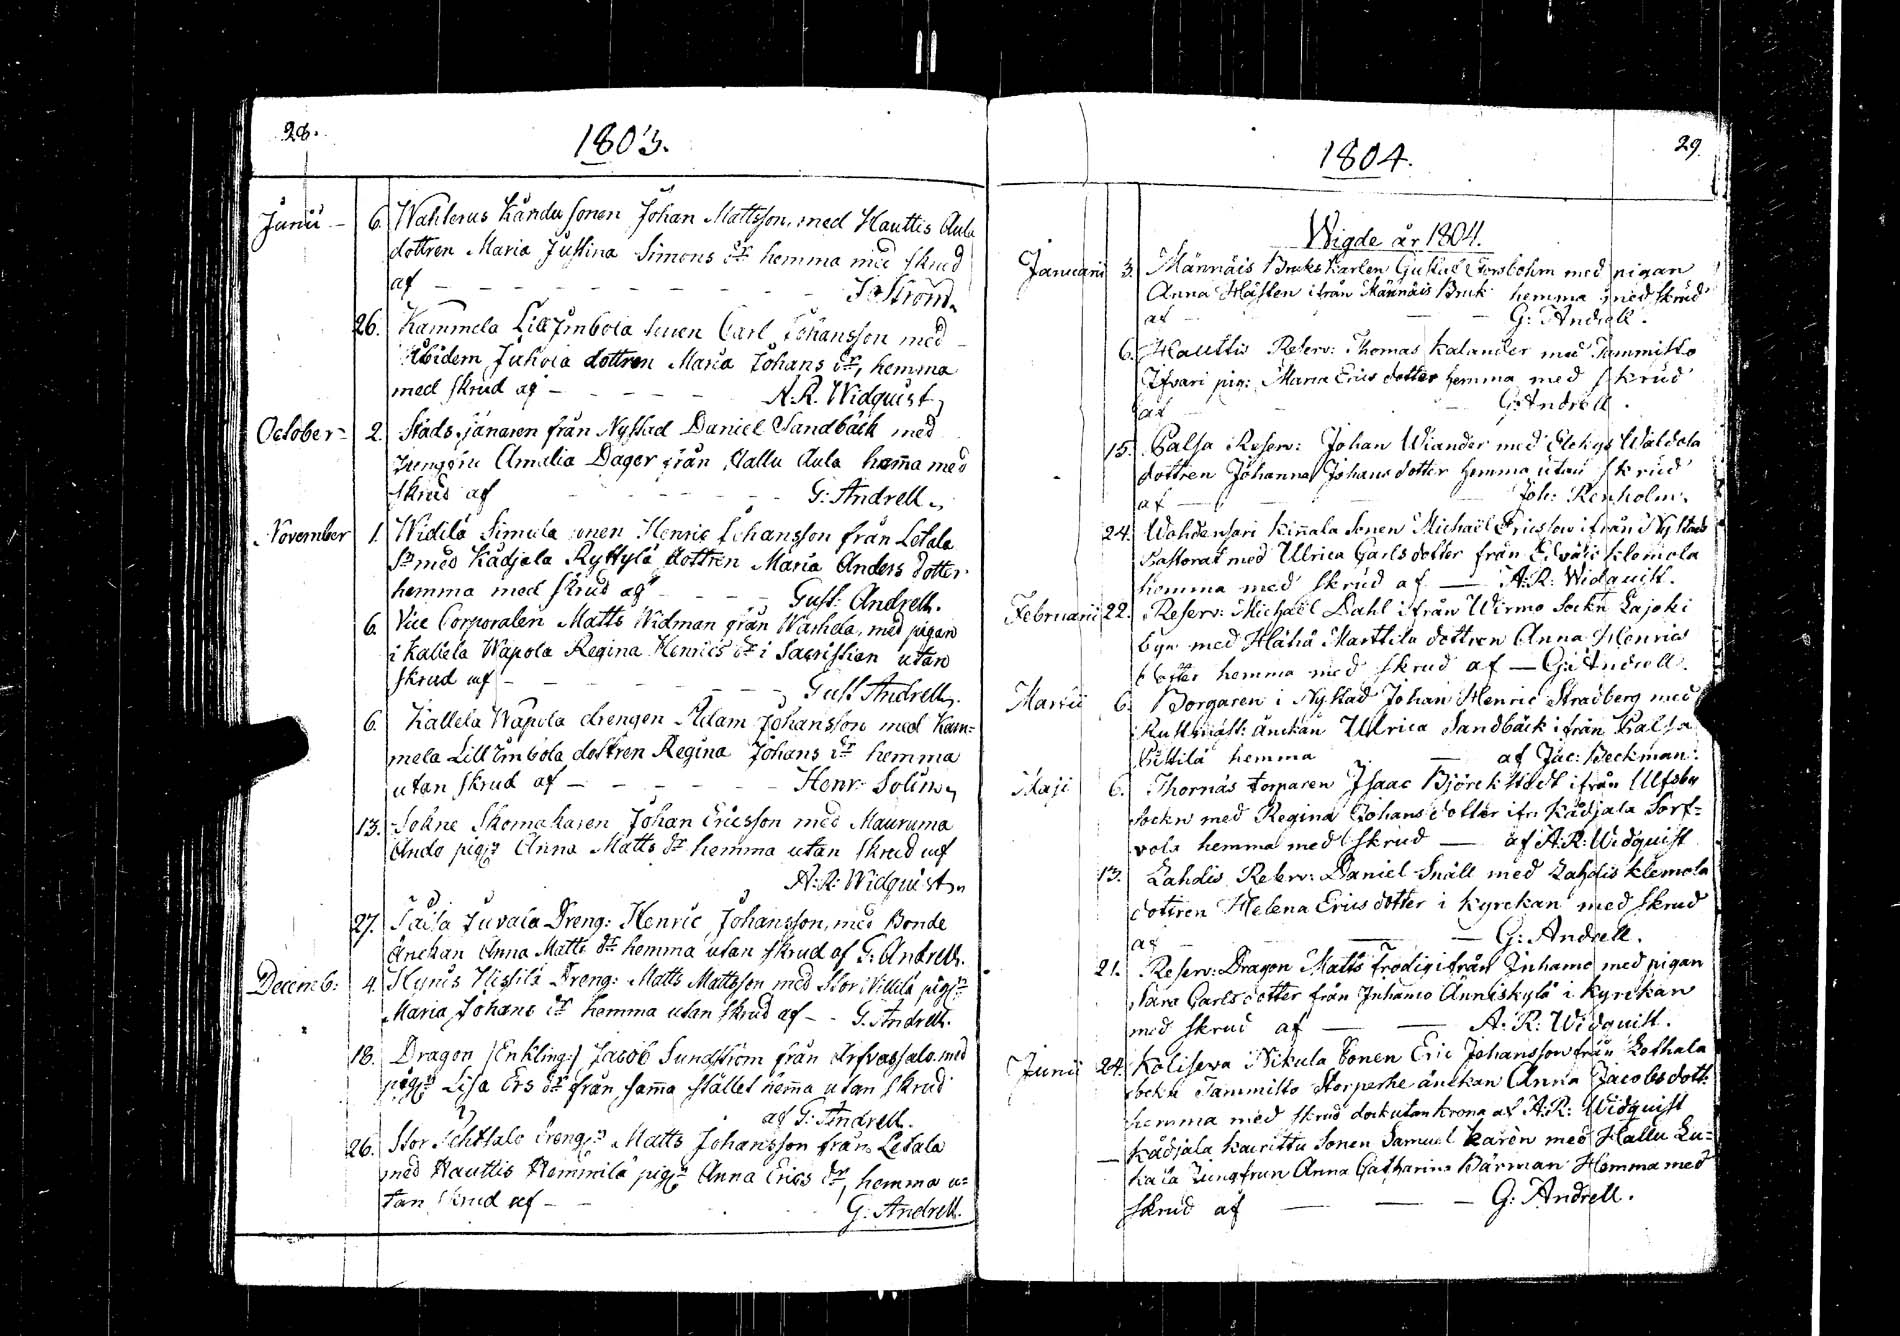 28.
1803.
Junii - 6. Wahlerus Kändu sonen Johan Mattsson, med Hauttis Aula
dottren Maria Justina Simons dr hemma med skrud
af - - - - - - - - - Ström.
26. Kammela Lill Imbola sonen Carl Johansson med
Ibidem Juhola dottren Maria Johans dr, hemma
med skrud af - - - - - A.R. Widquist
October - 2. Stadstjänaren från Nystad Daniel Sandbäck med
Jungfru Amalia Dager från Kallu Aula hemma med
skrud af - - - - - - G: Andrell.
November 1. Widilä Simula sonen Henric Johansson från Letala
Sn med Kädjala Ryttylä dottren Maria Anders dotter
hemma med skrud af - - - - Gust: Andrell.
6. Vice Corporalen Matts Widman från Warhela, med pigan
i Kallela Wapola Regina Henrics dr i Sacristian utan
skrud af - - - - - - - Gust Andrell.
6. Kallela Wapola drengen Adam Johansson med Kam=
mela Lill Imbola dottren Regina Johans dr hemma
utan skrud af - - - - - Henr: Solin
13. Sohne Skomakaren Johan Ericsson med Mauruma
Ando pign Anna Matts dr hemma utan skrud af
A:R: Widquist
27. Taila Juvala Dreng: Henric Johansson, med Bonde
Änckan Anna Matts dr hemma utan skrud af G: Andrell.
Decemb: 4. Hynis Hissilä Dreng: Matts Mattsson med Stor Willilä pign
Maria Johans dr hemma utan skrud af - - G. Andrell.
18. Dragon /Enkling:/ Jacob Sundström från Arfvassalo med
pign Lisa Ers dr från samma stället hemma utan skrud
af G: Andrell.
26. Stor drengn Matts Johansson från Letala
med Hauttis Hemmilä pign Anna Erics dr, hemma u=
tan skrud af - - G: Andrell.
29.
1804.
Wigde år 1804.
Januarii 3. Männäis Bruks Karlen Gustaf Forsbohm med pigan
Anna Hästen ifrån Männäis Bruk hemma med skrud
af - - - G: Andrell.
6. Hauttis Reserv: Thomas Kalander med Tammisto
Ifvari pig: Maria Erics dotter hemma med skrud
af - - G: Andrell.
15. Palsa Reserv: Johan Wiander med Elekys Wäldola
dottren Johanna Johans dotter hemma utan skrud
af - - - Joh: Renholm.
24. Wohdensari Kinnala Sonen Michaël Ericsson ifrån Nystads
Pastorat med Ulrica Carls dotter från Klemola
hemma med skrud af - A:R: Widquist.
Februarii 22. Reserv: Michaël Dahl ifrån Wirmo Sockn Lajoki
by med Marttila dottren Anna Henrics
dotter hemma med skrud af - G: Andrell.
Martii 6. Borgaren i Nystad Johan Henric Stradberg med
Rustmäst: änckan Ulrica Sandbäck ifrån Palsa
Puttila hemma - af Jac: Beckman.
Maji 6. Thornäs torparen Isaac Björckstedt ifrån Ulfsby
Sockn med Regina Johans dotter ifr: Kädjala Sorf=
vola hemma med skrud - af A:R: Widquist
13. Lahdis Reserv: Daniel Snäll med Lahdis Klemola
dottren Helena Erics dotter i Kyrckan med skrud
af - - G: Andrell.
21. Reserv: Dragon Matts Frodig ifrån Inhamo med pigan
Sara Carls dotter från Inhamo Änniskylä i kyrckan
med skrud af - - A: R: Widquist.
Junii 24. Kolisewa Nikula Sonen Eric Johansson från Lethala
Sockn Tammisto Storperhe änckan Anna Jacobs dott:
hemma med skrud dock utan krona af A:R: Widquist
- Kädjala Kaurittu Sonen Samuel Karén med Hallu Lu=
kala Jungfrun Anna Catharina Bärman Hemma med
skrud af - - G: Andrell.